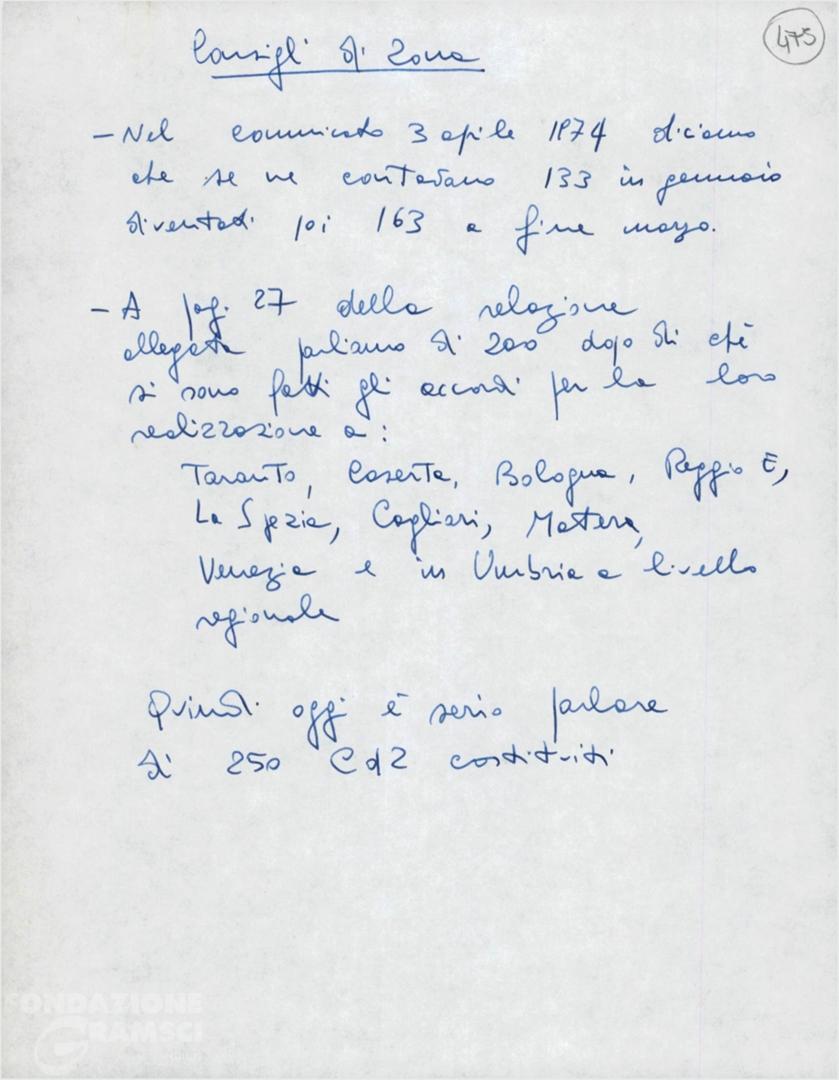 475
Consigli di Zona
- Nel comunicato 3 aprile 1974 diciamo
che se ne contavano 133 in gennaio
diventati poi 163 a fine marzo.
- A pag. 27 della relazione
allegata parliamo di 200 dopo di che
si sono fatti gli accordi per la loro
realizzazione a:
Taranto, Caserta, Bologna, Reggio E,
La Spezia, Cagliari, Matera,
Venezia e in Umbria a livello
regionale
Quindi oggi è serio parlare
di 250 CdZ costituiti
FONDAZIONE
GRAMSCI